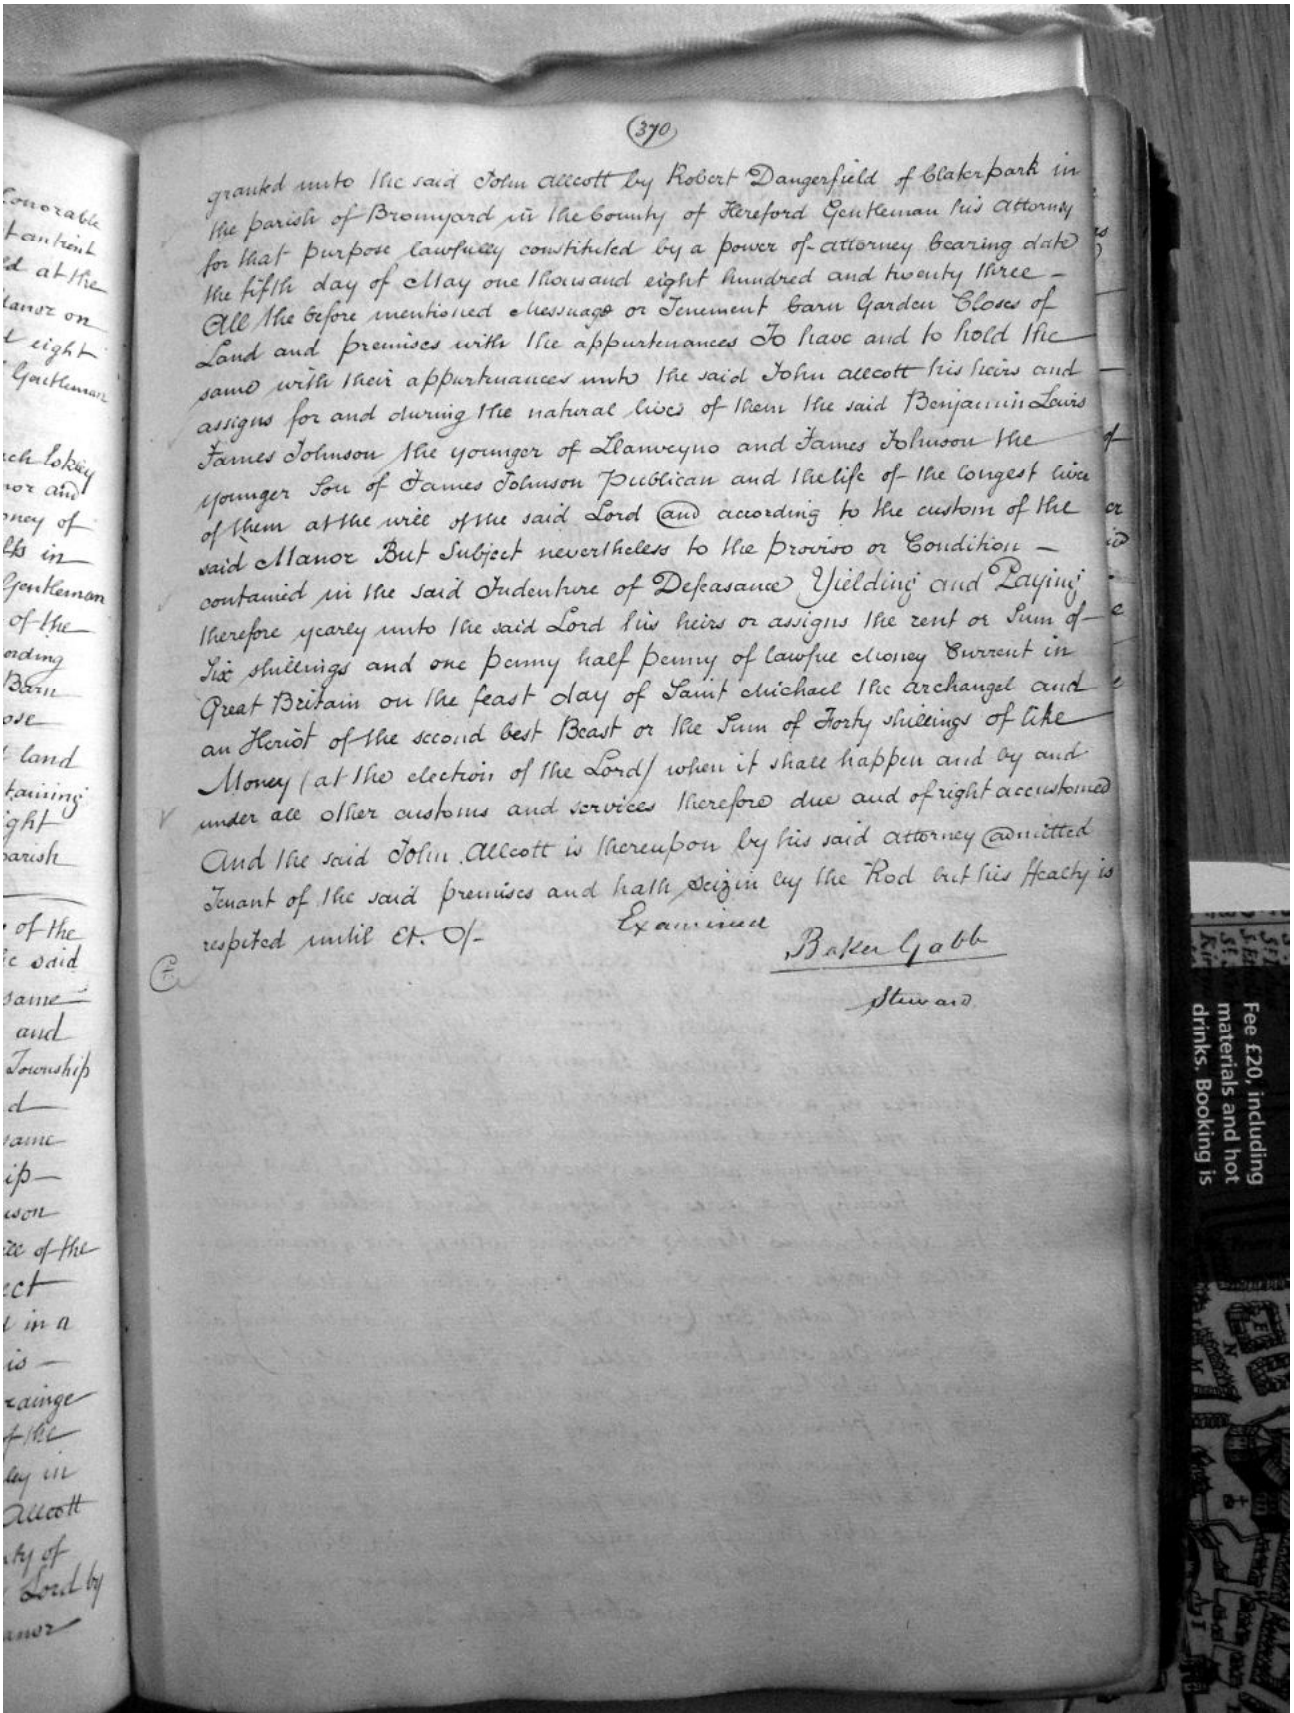 onorable
t antient
ld at the
Manor on
d eight
Gentleman
nor and
oney of
lks in
Gentleman
of the
ording
Barn
ose
land
taining
ight
parish
of the
e said
same
and
Township
d
same
ip
son
ill of the
ect
in a
is
rainge
of the
ley in
Allcott
nty of
Lord by
anor
370
granted unto the said John Allcott by Robert Dangerfield of Claterpark in
the parish of Bromyard in the County of Hereford Gentleman his Attorney
for that purpose lawfully constituted by a power of attorney bearing date
the fifth day of May one thousand eight hundred and twenty three –
All the before mentioned Messuage or Tenement Barn Garden Closes of
Land and premises with the appurtenances To have and to hold the
same with their appurtenances unto the said John Allcott his heirs and
assigns for and during the natural lives of them the said Benjamin Lewis
James Johnson the younger of Llanveyno and James Johnson the
younger Son of James Johnson Publican and the life of the longest liver
of them at the will of the said Lord and according to the custom of the
said Manor But Subject nevertheless to the proviso or Condition –
contained in the said Indenture of Defeasance Yielding and Paying
therefore yearly unto the said Lord his heirs or assigns the rent or Sum of
Six shillings and one penny half penny of lawful Money Current in
Great Britain on the feast day of Saint Michael the Archangel and
an Heriot of the second best Beast or the Sum of Forty shillings of like
Money (at the election of the Lord) when it shall happen and by and
under all other customs and services therefore due and of right accustomed
And the said John Allcott is thereupon by his said attorney admitted
Tenant of the said premises and hath seizin by the Rod but his ffealty is
respited until &c.
Examined
Baker Gabb
Steward
Fee £20, including
materials and hot
drinks. Booking is